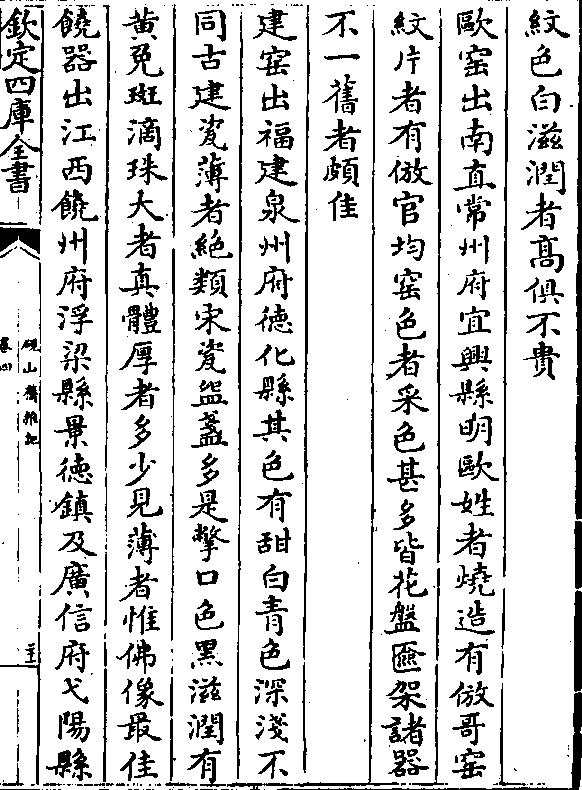 紋色白滋潤者高俱不貴
歐窑出南直常州府宜興縣明歐姓者燒造有倣哥窑
紋片者有倣官均窑色者采色甚多皆花盤匳架諸器
不一舊者頗佳
建窑出福建泉州府德化縣其色有甜白青色深淺不
同古建瓷薄者絕類宋瓷盌盞多是撆口色黑滋潤有
黄免斑滴珠大者真體厚者多少見薄者惟佛像最佳
饒器出江西饒州府浮梁縣景德鎮及廣信府弋陽縣
欽定四庫全書
硯山齋雜記
卷四